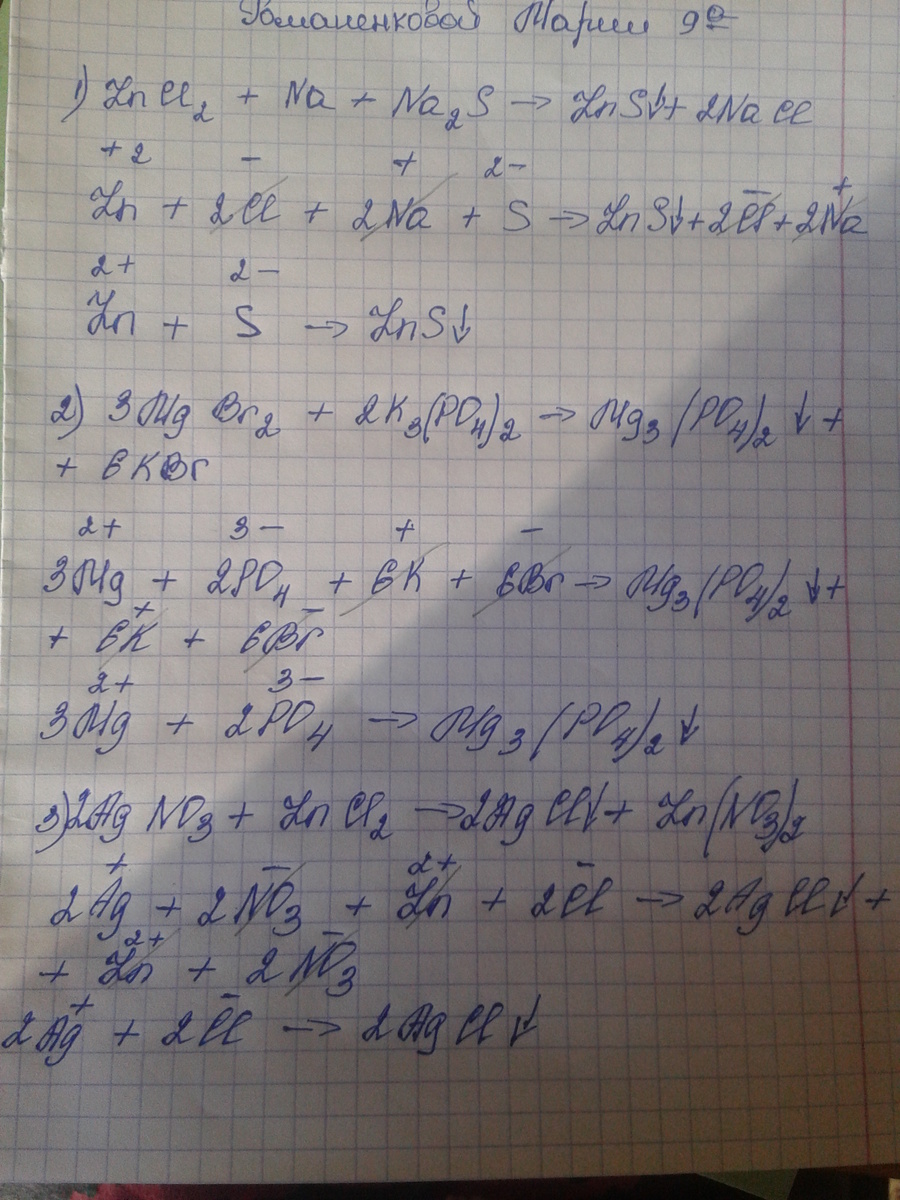 Романенковой Марии 9а
1) ZnCl₂ + Na + Na₂S → ZnS↓ + 2NaCl
+2 - + 2-
Zn + 2Cl + 2Na + S → ZnS↓ + 2Cl⁻ + 2Na⁺
2+ 2-
Zn + S → ZnS↓
2) 3MgBr₂ + 2K₃(PO₄)₂ → Mg₃(PO₄)₂↓ +
+ 6KBr
2+ 3- + -
3Mg + 2PO₄ + 6K + 6Br → Mg₃(PO₄)₂↓ +
+ 6K⁺ + 6Br⁻
2+ 3-
3Mg + 2PO₄ → Mg₃(PO₄)₂↓
3) 2AgNO₃ + ZnCl₂ → 2AgCl↓ + Zn(NO₃)₂
+ - 2+ -
2Ag + 2NO₃ + Zn + 2Cl → 2AgCl↓ +
+ Zn²⁺ + 2NO₃⁻
2Ag⁺ + 2Cl⁻ → 2AgCl↓